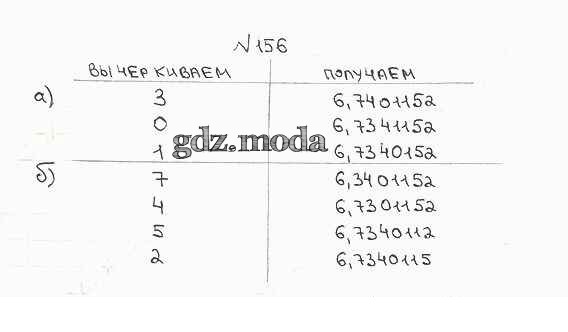 №156
ВЫЧЕРКИВАЕМ ПОЛУЧАЕМ
а) 3 6,7401152
0 6,7341152
1 6,7340152
gdz.moda
б) 7 6,3401152
4 6,7301152
5 6,7340112
2 6,7340115